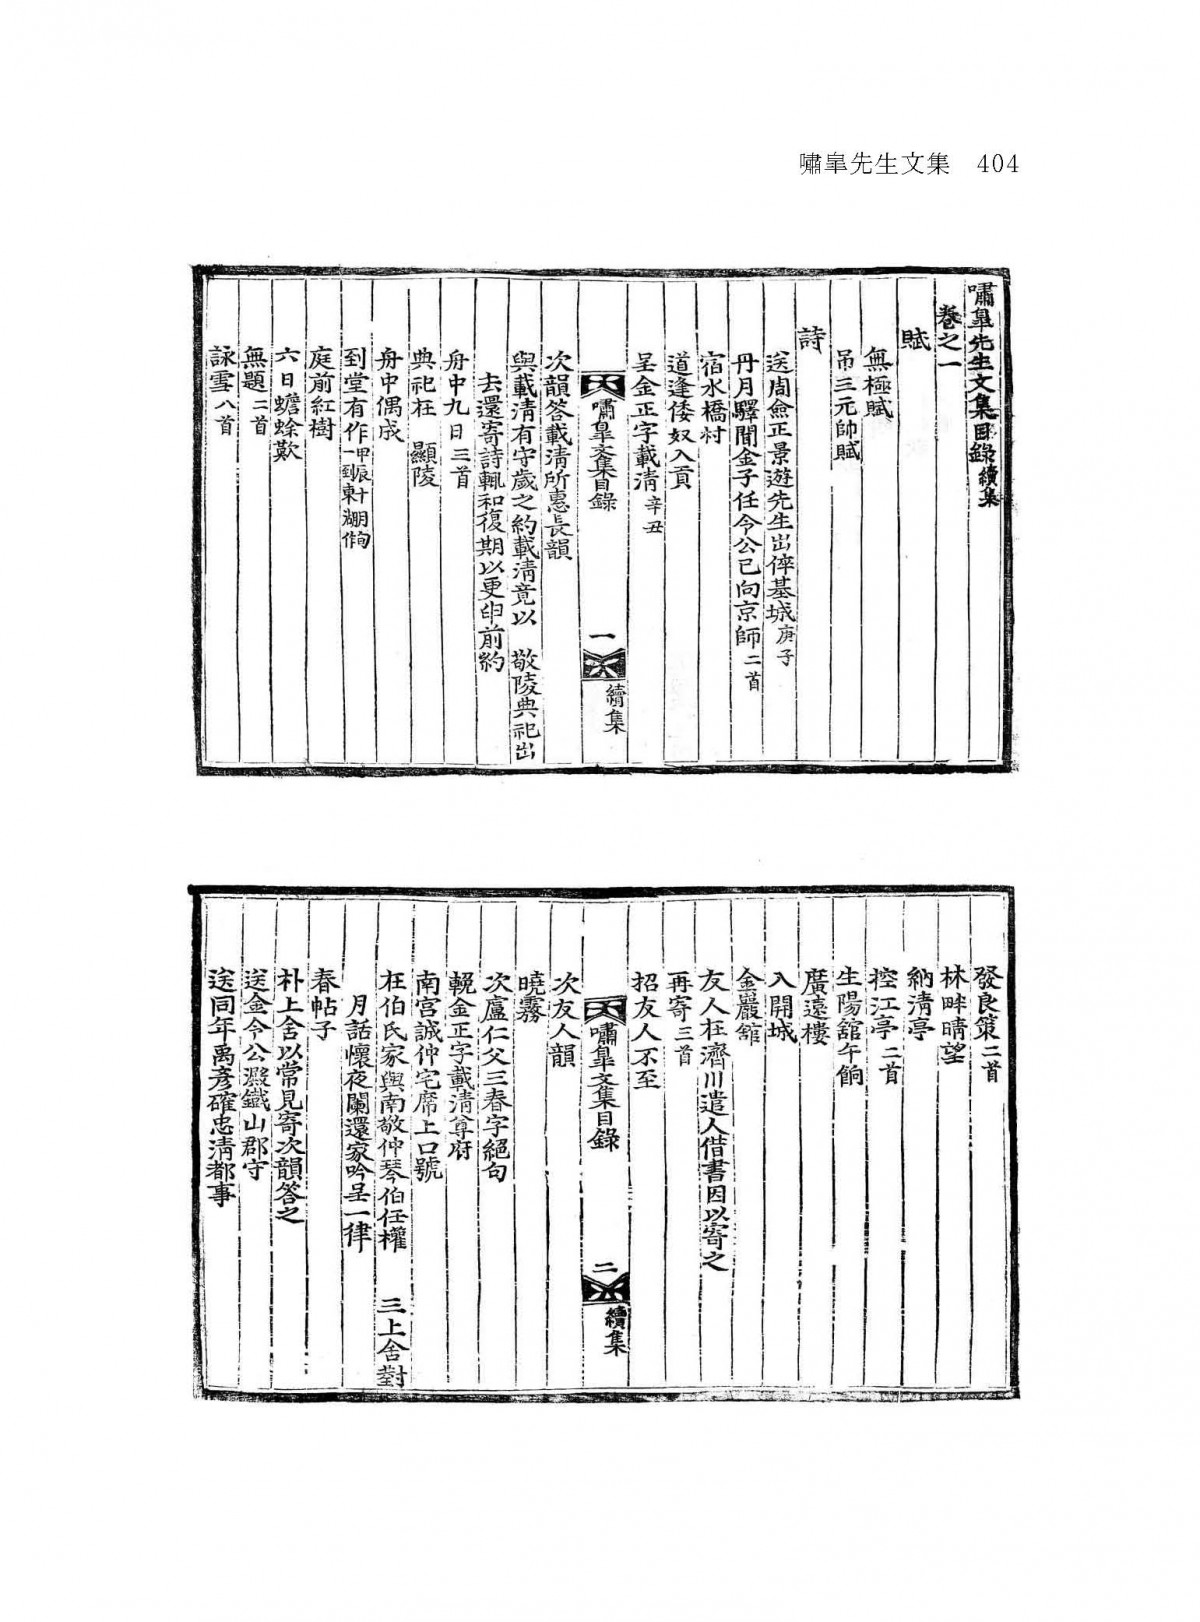 嘯皐先生文集 404
嘯皐先生文集目錄 續集
卷之一
賦
無極賦
吊三元帥賦
詩
送周僉正景遊先生出倅基城 庚子
丹月驛聞金子任令公已向京師 二首
宿水橋村
道逢倭奴入貢
呈金正字載淸 辛丑
嘯皐文集目錄 一 續集
次韻答載淸所惠長韻
與載淸有守歲之約載淸竟以 敬陵典祀出
去還寄詩輒和復期以更申前約
舟中九日 三首
典祀在 顯陵
舟中偶成
到堂有作 甲辰十月旬一到東湖作
庭前紅樹
六日蟾蜍歎
無題 二首
詠雪 八首
發良策 二首
林畔晴望
納淸亭
控江亭 二首
生陽舘午餉
廣遠樓
入開城
金巖舘
友人在濟川遣人借書因以寄之
再寄 三首
招友人不至
嘯皐文集目錄 二 續集
次友人韻
曉霧
次盧仁父三春字絕句
輓金正字載淸尊府
南宮誠仲宅席上口號
在伯氏家與南敬仲琴伯任權 三上舍對
月話懷夜闌還家吟呈一律
春帖子
朴上舍以常見寄次韻答之
送金令公澱鐵山郡守
送同年禹彥確忠淸都事